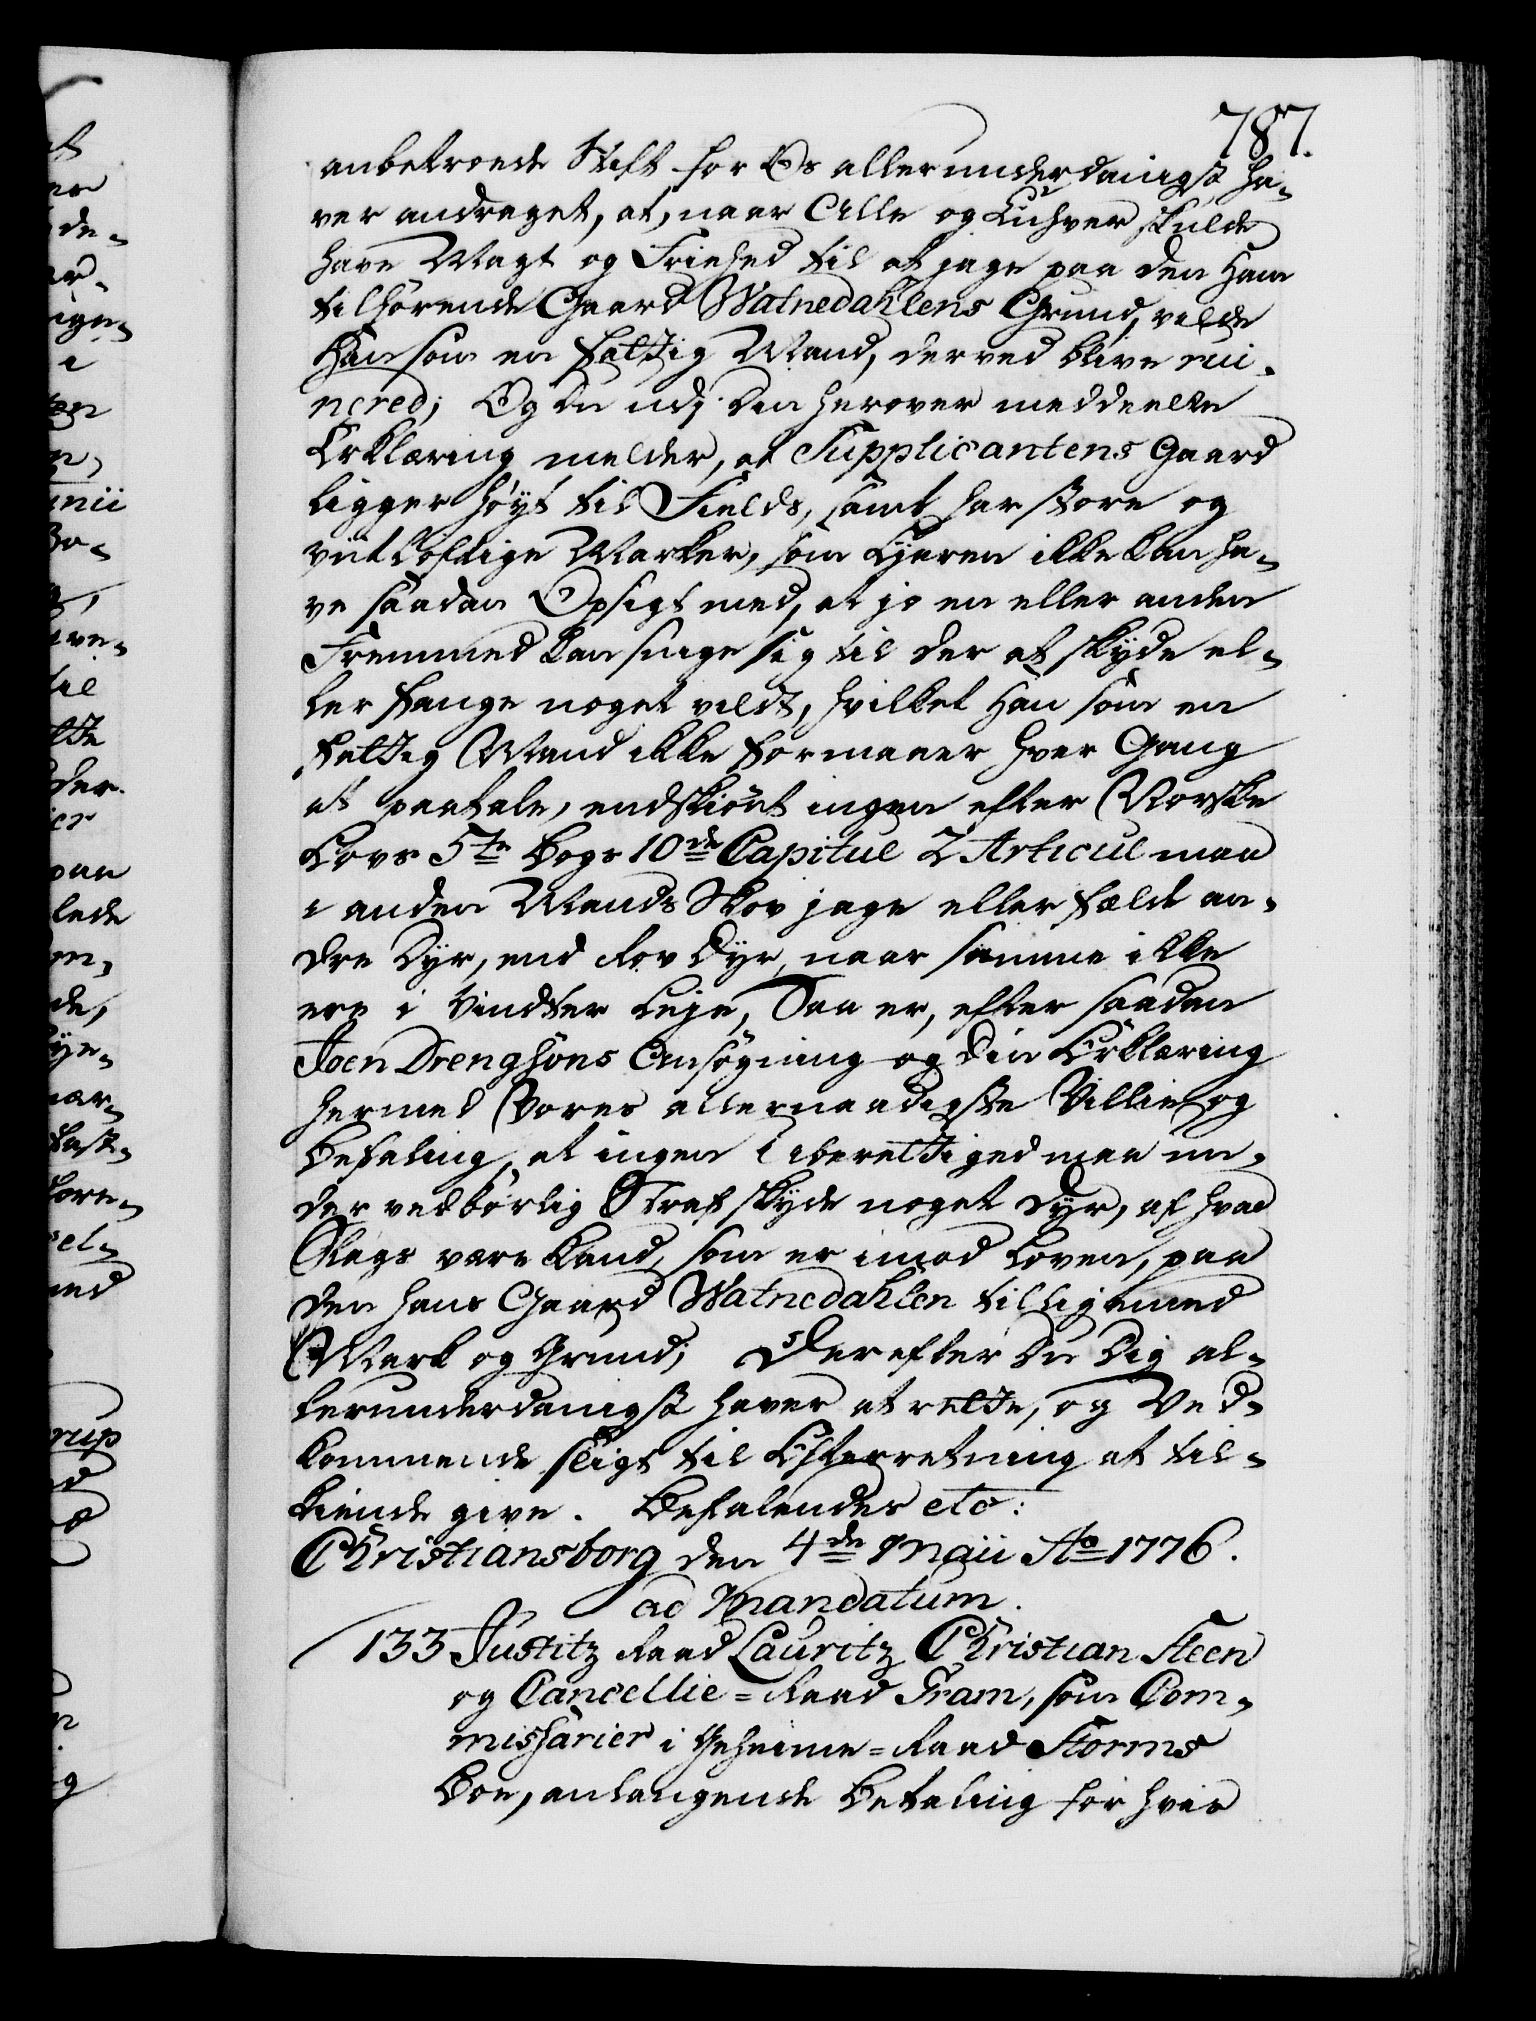 787.
anbetroede Stift for Os allerunderdanigst ha-
ver andraget, at, naar Alle og Enhver skulde
have Magt og Friehed til at jage paa den Ham
tilhørende Gaard Watnedahlens Grund, vilde
Han som en fattig Mand, derved blive rui-
nered; Og Du udj Din herover meddeelte
Erklæring melder, at Supplicantens Gaard
ligger høyt til Fields, samt har store og
vitløftige Marker, som Ejeren ikke kan ha-
ve saadan Opsigt med, at jo en eller anden
Fremmed kan snige sig til der at skyde el-
ler fange noget vildt, hvilket Han som en
fattig Mand ikke formaaer hver Gang
at paatale, endskiønt ingen efter Norske
Lovs 5te Bogs 10de Capitul 2 Articul maa
i anden Mands Skov jage eller fælde an-
dre Dyr, end Rov Dyr, naar samme ikke
ere i Vindter Leje, Saa er, efter saadan
Joen Drengsøns Ansøgning og Din Erklæring
hermed Vores allernaadigste Villie og
Befaling, at ingen Uberettiged maa un-
der vedbørlig Straf skyde noget Dyr, af hvad
Slags være kand, som er imod Loven, paa
den hans Gaard Watnedahlen tilligemed
Mark og Grund; Derefter Du Dig al-
lerunderdanigst haver at rette, og Ved-
kommende sligt til Efterretning at til-
kiende give. Befalendes etc:
Christiansborg den 4de Maii Ao 1776.
ad Mandatum.
133 Justitz Raad Lauritz Christian Steen
og Cancellie-Raad Fram, som Com-
missarier i Geheime-Raad Storms
Boe, anlangende Betaling for hvis